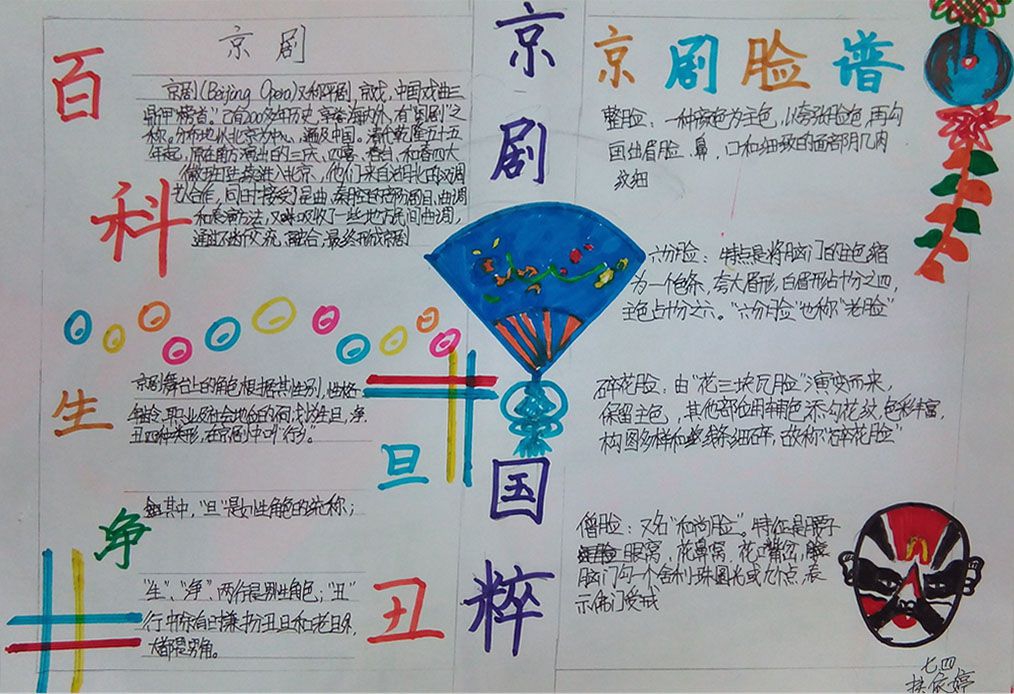 百科
京剧
京剧(Beijing Opera)又称平剧,京戏,中国戏曲三
鼎甲"榜首"已有200多年历史,享誉海内外,有"国剧"之
称。分布地以北京为中心,遍及中国。清代乾隆五十五
年起,原在南方演出的三庆、四喜、春台、和春四大
徽班陆续进入北京,他们来自湖北的汉调
艺人合作,同时接受了昆曲、秦腔的部分剧目、曲调
和表演方法,又吸收了一些地方民间曲调,
通过不断交流、融合,最终形成京剧
生
京剧舞台上的角色根据其性别,性格
年龄,职业及社会地位的不同,划为生旦,净
丑四种类形,在京剧中叫"行"。
旦
其中,"旦"是女性角色的统称;
净
"生"、"净",两行是男性角色;"丑"
行中除有时兼扮丑旦和老旦外,
大都是男角。
丑
京剧国粹
京剧脸谱
整脸:一种颜色为主色,以夸张肤色,再勾
画出眉、眼、鼻,口和细致的面部肌肉
纹细
六分脸:特点是将脑门的主色缩
为一个色条,夸大眉形,白眉形占十分之四,
主色占十分之六。"六分脸"也称"老脸"
碎花脸:由"花三块瓦脸"演变而来,
保留主色,其他部位用辅色添勾花纹,色彩丰富,
构图多样和些线条细碎,故称"碎花脸"
僧脸:又名"和尚脸"。特征是腰子
眼窝,花鼻窝,花嘴岔,
脑门勾一个舍利珠圆光或九个点,表
示佛门受戒
七四
扶依婷